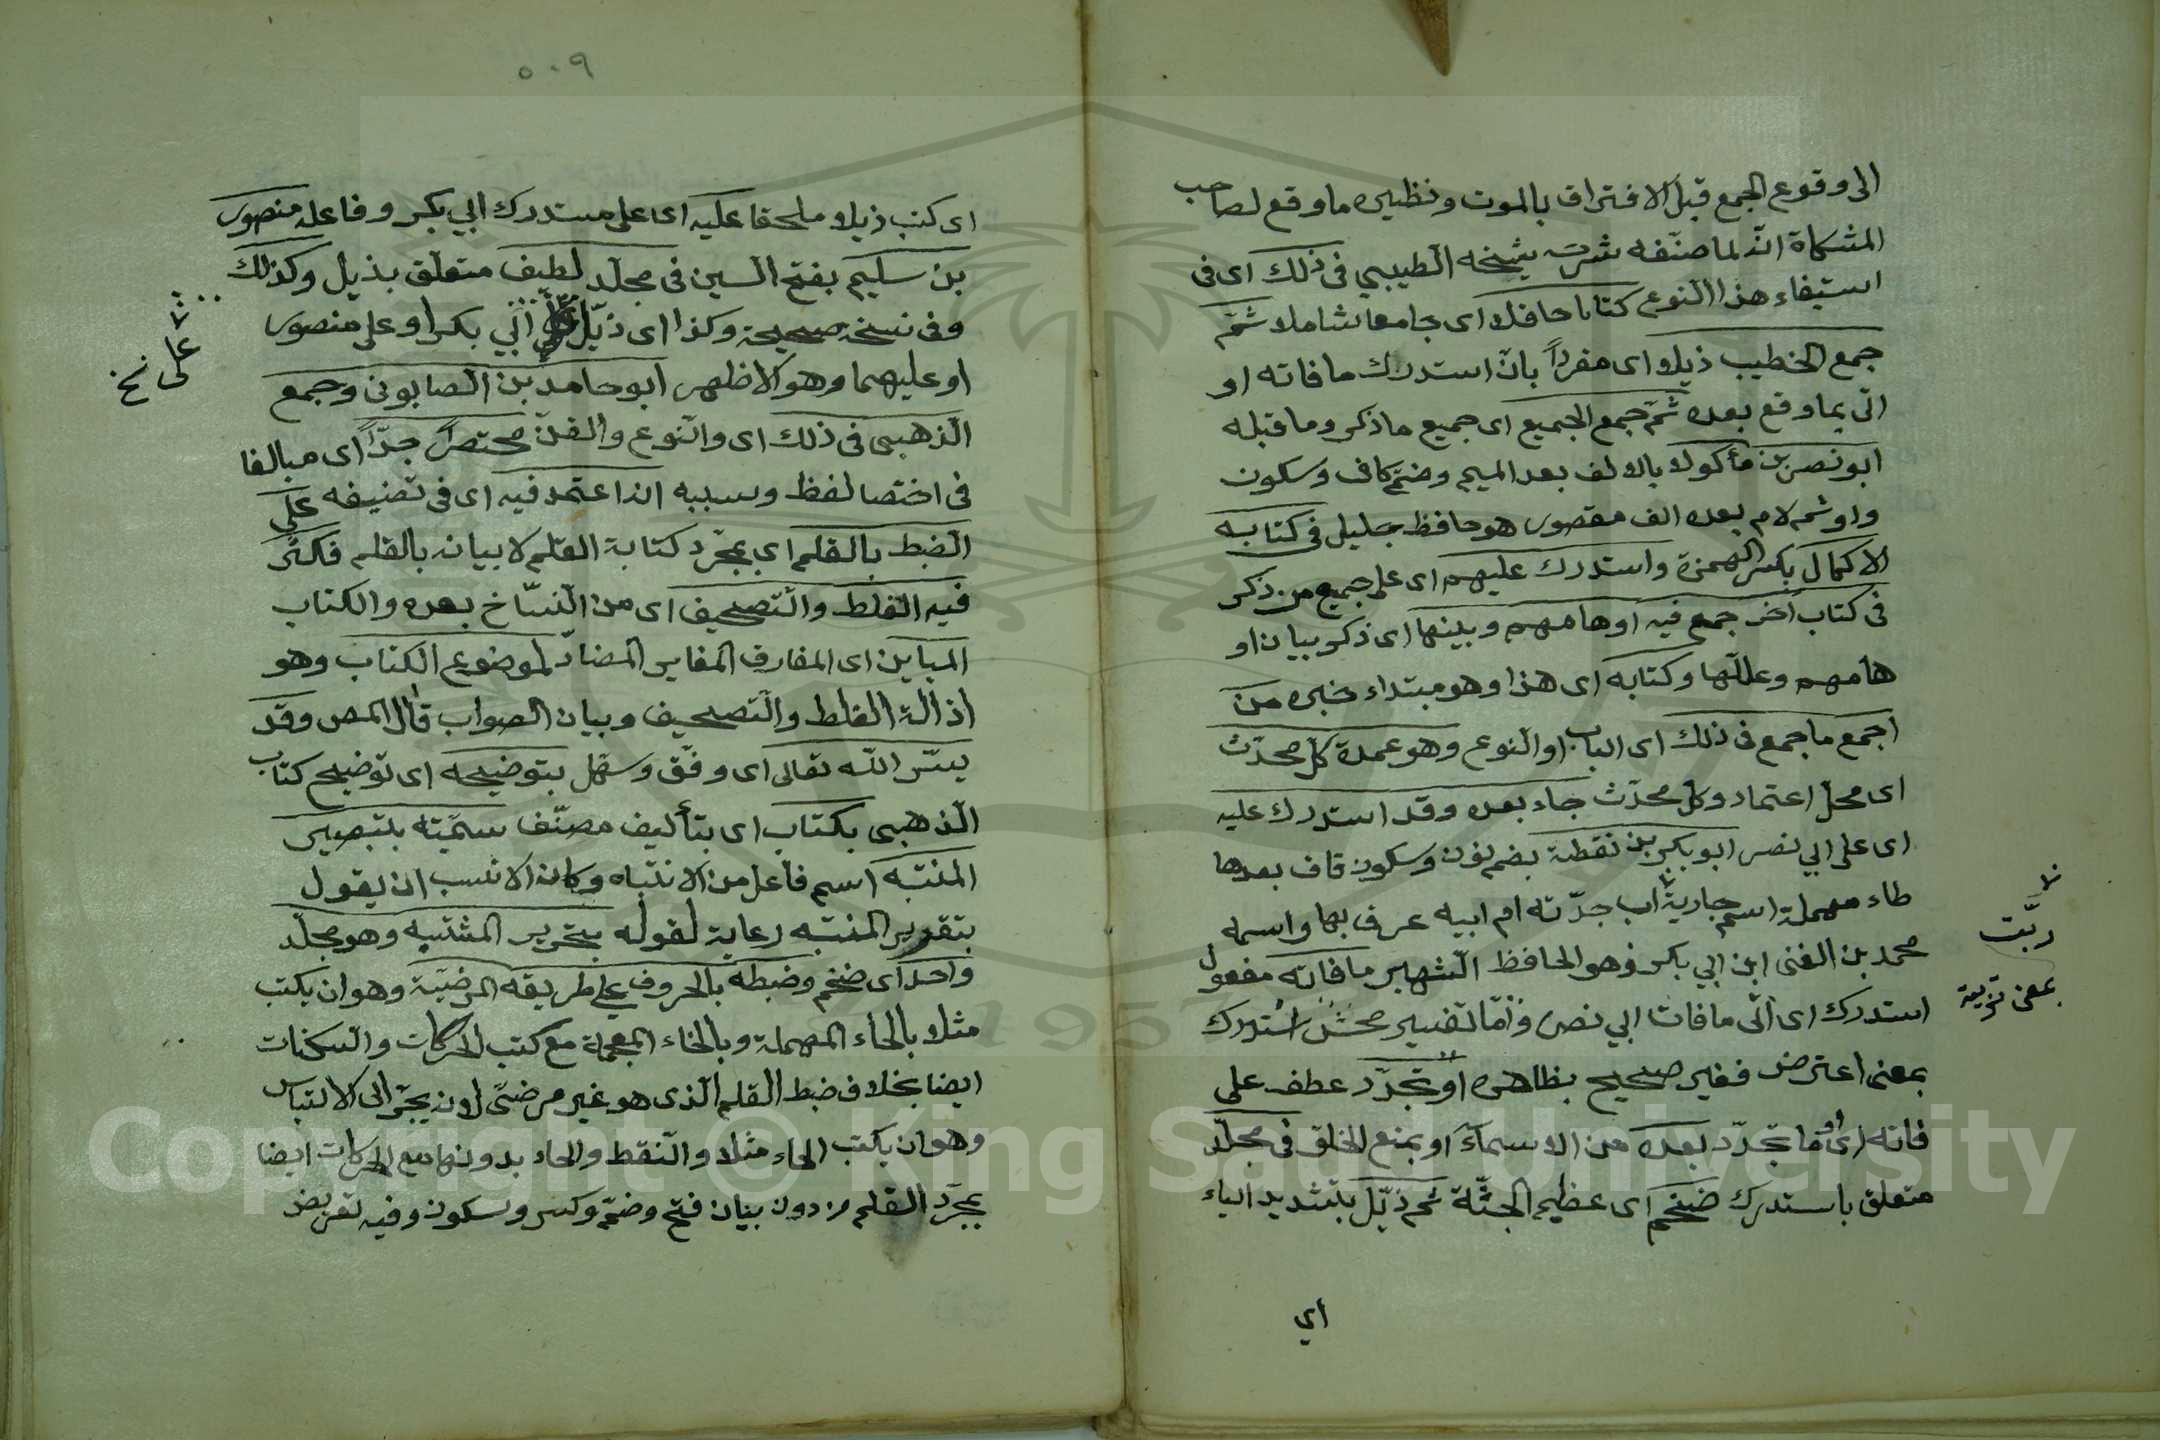 الى وقوع الجمع قبل الافتراق بالموت ونظيره ما وقع لصاحب
المشكاة انّه لما صنّفه شرحه شيخه الطيبي في ذلك اى فى
استيفاء هذا النوع كتابا حافلا اى جامعا شاملا ثمّ
جمع الخطيب ذيلا اى مفرداً بان استدرك ما فاته او
اتى بما وقع بعده ثمّ جمع الجميع اى جميع ما ذكر وما قبله
ابو نصر بن مأكولا بالالف بعد الميم وضمّ كاف وسكون
واو ثم لام بعده الف مقصور هو حافظ جليل فى كتابه
الاكمال بكسر الهمزة واستدرك عليهم اى على جميع من ذكر
فى كتاب آخر جمع فيه اوهامهم وبينها اى ذكر بيان او
هامهم وعللها وكتابه اى هذا وهو مبتداء خبره من
اجمع ما جمع فى ذلك اى الباب او النوع وهو عمدة كلّ محدّث
اى محلّ اعتماد وكل محدّث جاء بعده وقد استدرك عليه
اى على ابي نصر ابو بكر بن نقطة بضم نون وسكون قاف بعدها
طاء مهملة اسم جارية اب جدّته ام ابيه عرف بها واسمه
محمد بن الغنى ابن ابي بكر وهو الحافظ الشهير ما فاته مفعول
استدرك اى اتى ما فات ابي نصر وامّا تفسير محش استدرك
بمعنى اعترض فغير صحيح بظاهره او تجدّد عطف على
فاته اى او ما تجدّد بعده من الاسماء او بمنع الخلق فى مجلّد
متعلق باستدرك ضخم اى عظيم الجثّة ثم ذيّل بتشديد الياء
اي
ربّت
بمعنى تربيعة
٥٠٩
اى كتب ذيلا وملحقا عليه اى على مستدرك ابي بكر وفاعله منصور
بن سليم بفتح السين فى مجلّد لطيف متعلّق بذيل وكذلك
وفى نسخة صحيحة وكذا اى ذيّل ابي بكر او على منصور
او عليهما وهو الاظهر ابو حامد بن الصابونى وجمع
الذهبى فى ذلك اى والنوع والفنّ مختصراً جدّاً اى مبالغا
فى اختصا لفظ وسببه انه اعتمد فيه اى فى تصنيفه على
الضبط بالقلم اي بمجرّد كتابة القلم لا بيانه بالقلم فكثر
فيه الغلط والتصحيف اى من النسّاخ بعده والكتاب
المباين اى المفارق المغاير المضادّ لموضوع الكتاب وهو
اذالة الغلط والتصحيف وبيان الصواب قال المص وقد
يسّر الله تعالى اى وفّق وسهّل بتوضيحه اى توضيح كتاب
الذهبى بكتاب اى بتأليف مصنّف سميّته بتبصير
المنتبه اسم فاعل من الانتباه وكان الانسب ان يقول
بتقرير المنتبه رعاية لقوله بتحرير المشتبه وهو مجلّد
واحد اى ضخم وضبطه بالحروف على طريقه المرضيّة وهو ان يكتب
مثلا بالحاء المهملة وبالخاء المعجمة مع كتب الحركات والسكنات
ايضا بخلاف ضبط القلم الذى هو غير مرضىّ لانه يجرّ الى الالتباس
وهو ان يكتب الحاء مثلا والنقط والحاء بدونها مع الحركات ايضا
بمجرّد القلم من دون بيان فتح وضمّ وكسر وسكون وفيه تعريض
على نخ
Copyright © King Saud University
1957